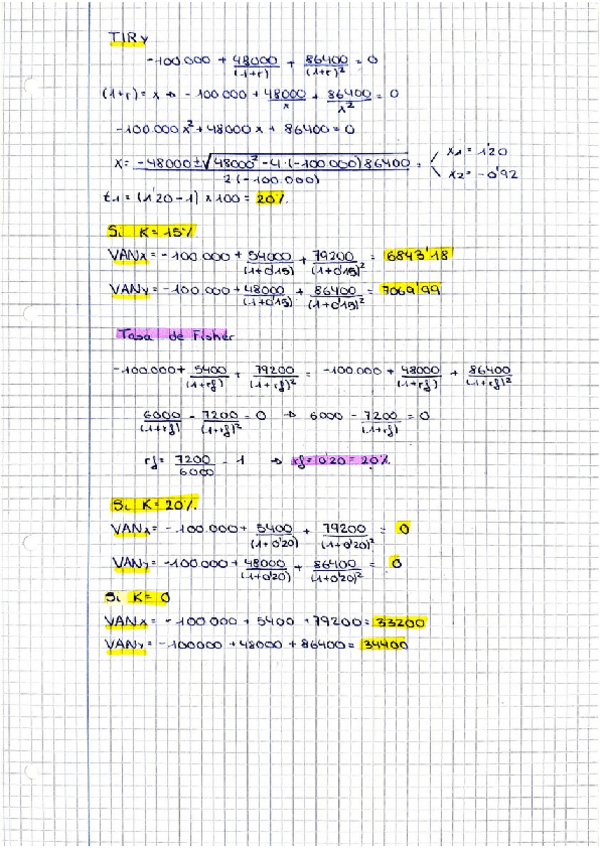 TIRy
-100.000 + 48000/(1+r) + 86400/(1+r)² = 0
(1+r) = x → -100.000 + 48000/x + 86400/x² = 0
-100.000x² + 48000x + 86400 = 0
x = -48000 ± √48000² - 4·(-100.000)86400 / 2(-100.000) = x1 = 1'20
x2 = -0'92
t1 = (1'20 - 1) x 100 = 20%
Si K = 15%
VANx = -100.000 + 54000/(1+0'15) + 79200/(1+0'15)² = 6843'18
VANy = -100.000 + 48000/(1+0'15) + 86400/(1+0'15)² = 7069'99
Tasa de Fisher
-100.000 + 5400/(1+rf) + 79200/(1+rf)² = -100.000 + 48000/(1+rf) + 86400/(1+rf)²
6000/(1+rf) - 7200/(1+rf)² = 0 → 6000 - 7200/(1+rf) = 0
rf = 7200/6000 - 1 → rf = 0'20 = 20%
Si K = 20%
VANx = -100.000 + 5400/(1+0'20) + 79200/(1+0'20)² = 0
VANy = -100.000 + 48000/(1+0'20) + 86400/(1+0'20)² = 0
Si K = 0
VANx = -100.000 + 5400 + 79200 = 33200
VANy = -100000 + 48000 + 86400 = 34400